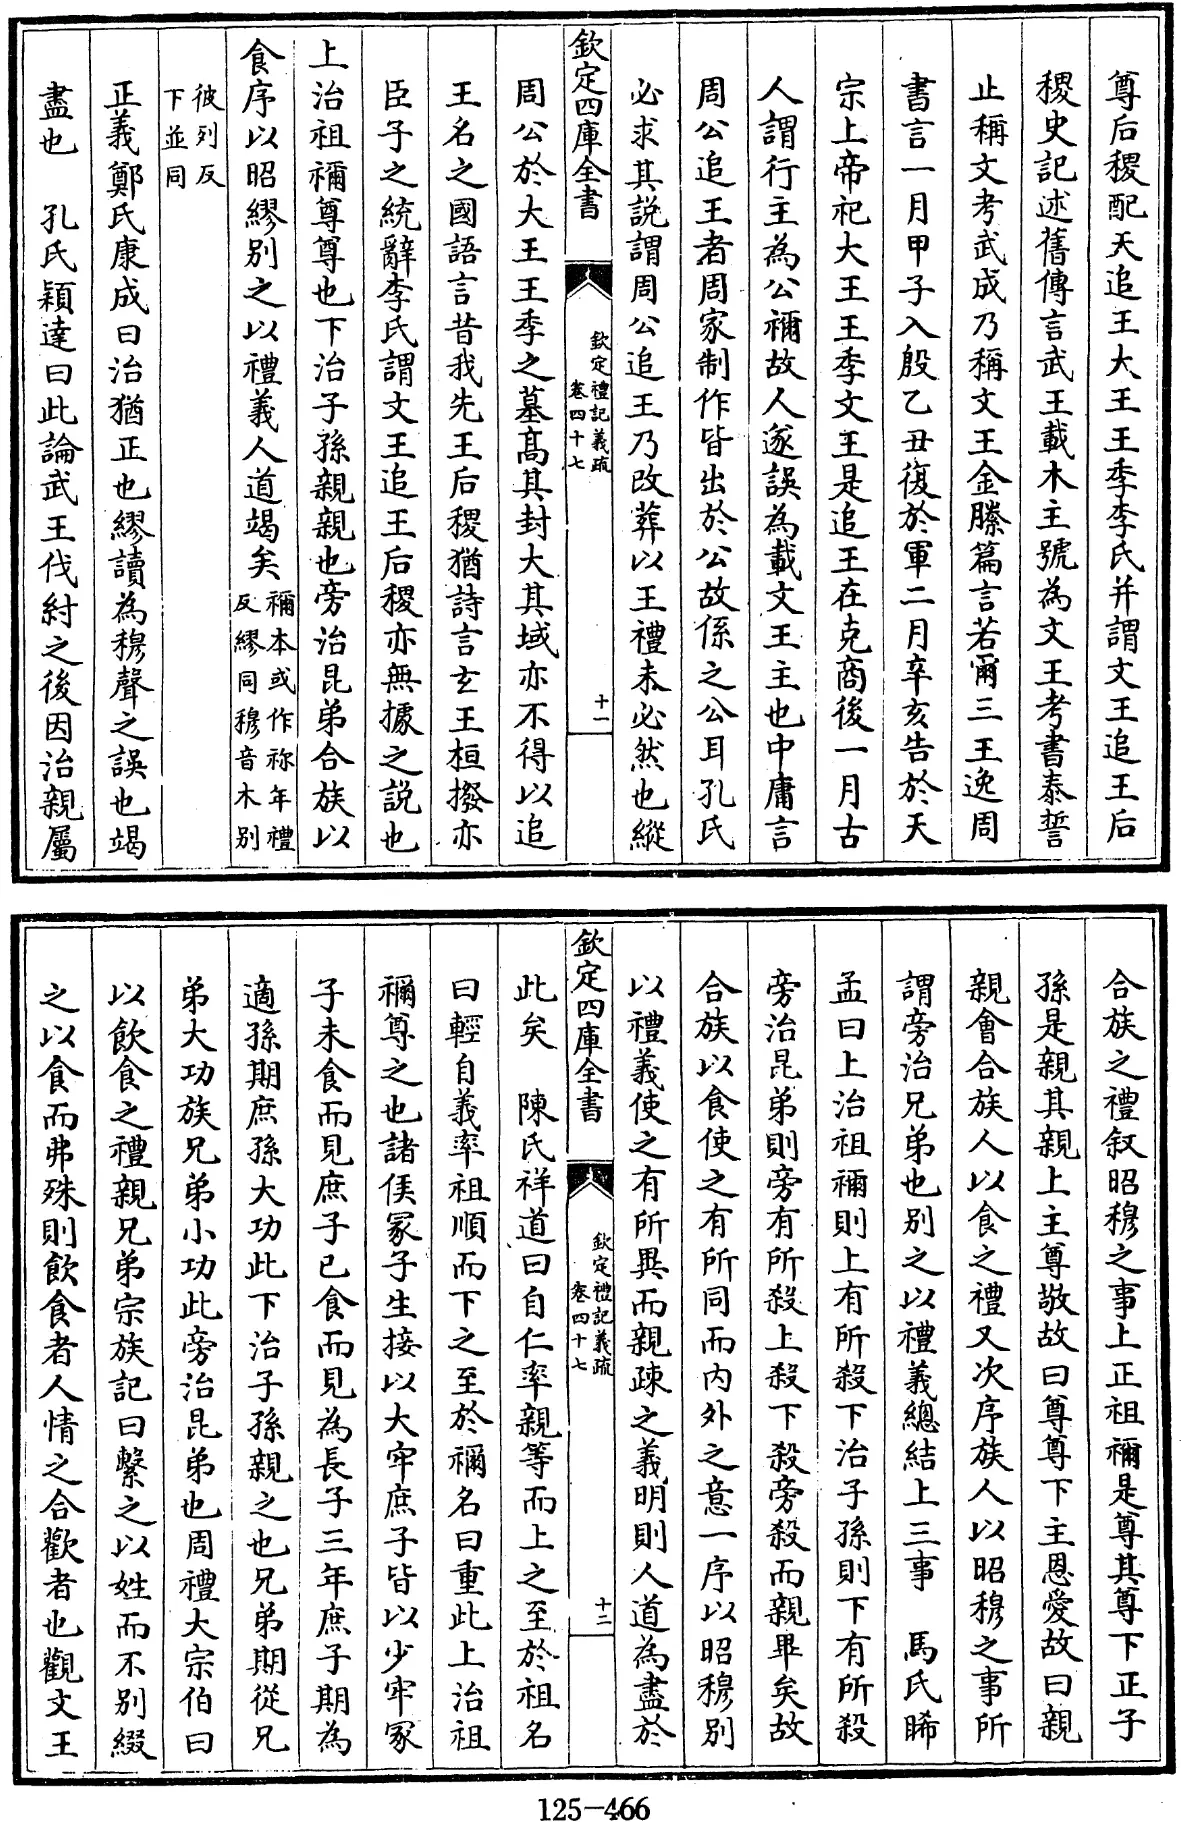 尊后稷配天追王大王王季李氏并謂文王追王后
稷史記述舊傳言武王載木主號為文王考書泰誓
止稱文考武成乃稱文王金縢篇言若爾三王逸周
書言一月甲子入殷乙丑復於軍二月辛亥告於天
宗上帝祀大王王季文王是追王在克商後一月古
人謂行主為公禰故人遂誤為載文王主也中庸言
周公追王者周家制作皆出於公故係之公耳孔氏
必求其説謂周公追王乃改葬以王禮未必然也縱
欽定四庫全書
欽定禮記義疏
卷四十七
十一
周公於大王王季之墓髙其封大其域亦不得以追
王名之國語言昔我先王后稷猶詩言玄王桓撥亦
臣子之統辭李氏謂文王追王后稷亦無據之説也
上治祖禰尊尊也下治子孫親親也旁治昆弟合族以
食序以昭繆别之以禮義人道竭矣禰本或作祢年禮
反繆同穆音木别
彼列反
下並同
正義鄭氏康成曰治猶正也繆讀為穆聲之誤也竭
盡也　孔氏穎達曰此論武王伐紂之後因治親屬
合族之禮叙昭穆之事上正祖禰是尊其尊下正子
孫是親其親上主尊敬故曰尊尊下主恩愛故曰親
親會合族人以食之禮又次序族人以昭穆之事所
謂旁治兄弟也别之以禮義總結上三事　馬氏晞
孟曰上治祖禰則上有所殺下治子孫則下有所殺
旁治昆弟則旁有所殺上殺下殺旁殺而親畢矣故
合族以食使之有所同而内外之意一序以昭穆别
以禮義使之有所異而親疎之義明則人道為盡於
欽定四庫全書
欽定禮記義疏
卷四十七
十二
此矣　陳氏祥道曰自仁率親等而上之至於祖名
曰輕自義率祖順而下之至於禰名曰重此上治祖
禰尊之也諸侯冢子生接以大牢庶子皆以少牢冢
子未食而見庶子已食而見為長子三年庶子期為
適孫期庶孫大功此下治子孫親之也兄弟期從兄
弟大功族兄弟小功此旁治昆弟也周禮大宗伯曰
以飲食之禮親兄弟宗族記曰繫之以姓而不别綴
之以食而弗殊則飲食者人情之合歡者也觀文王
125-466